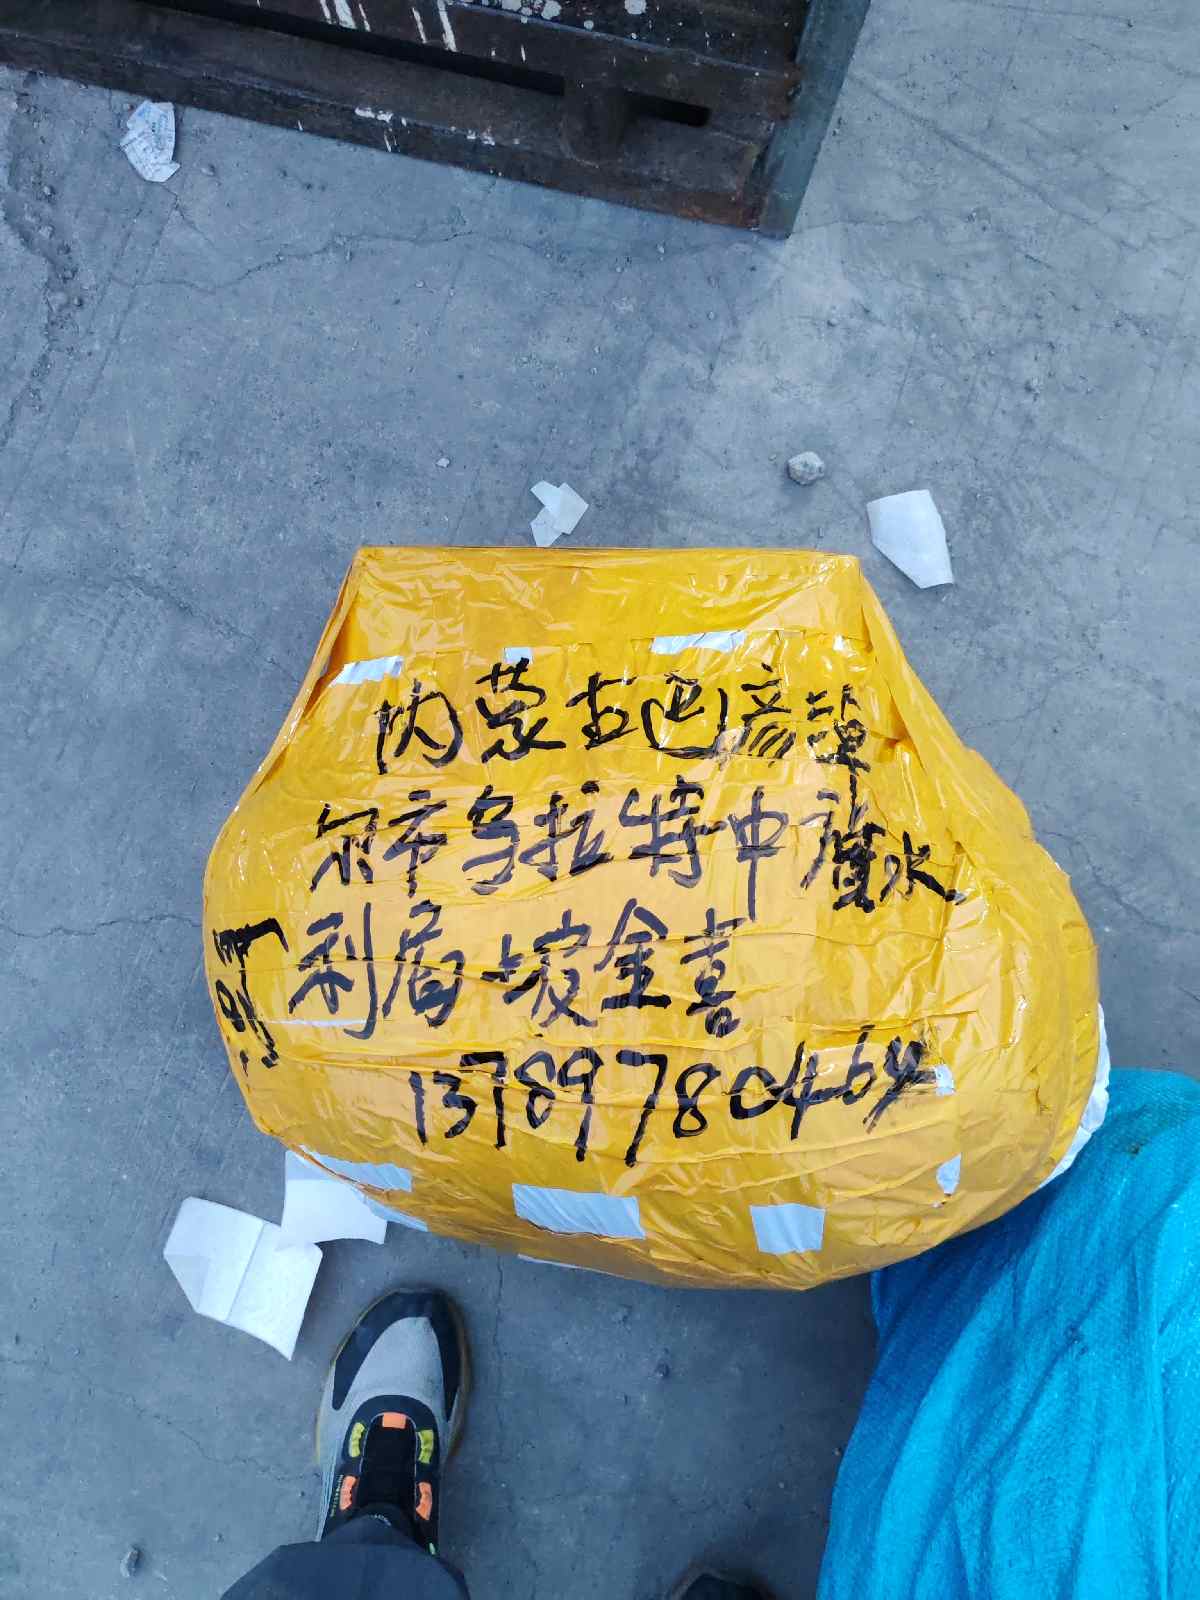 内蒙古巴彦淖
尔市乌拉特中旗水
利局 坡全喜
137897804